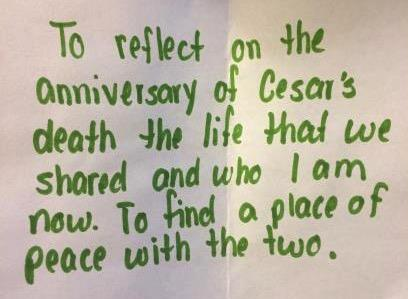 To reflect on the
anniversary of Cesar's
death the life that we
shared and who I am
now. To find a place of
peace with the two.